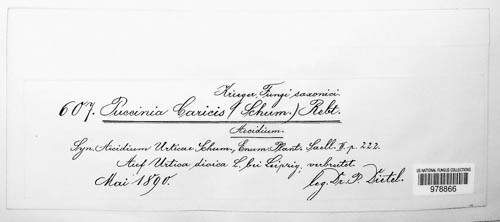 Krieger, Fungi saxonici.
607. Puccinia Caricis (Schum.) Rebt.
Aecidium.
Syn. Aecidium Urticae Schum., Enum. Plant. Saell. II. p. 222.
Auf Urtica dioica L. bei Leipzig, verbreitet.
Mai 1890. leg. Dr. P. Dietel.
US NATIONAL FUNGUS COLLECTIONS
978866